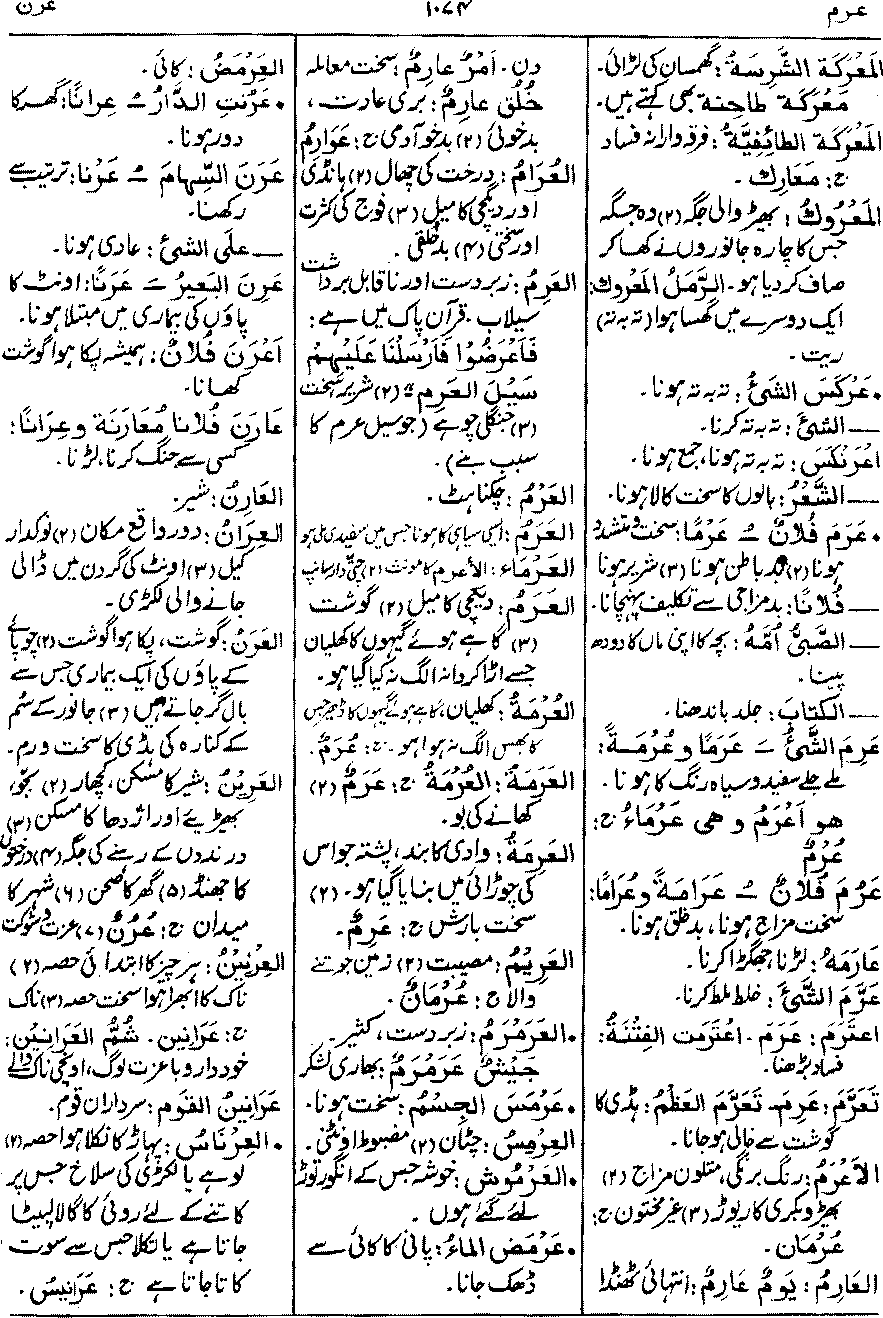 عرم ۱۰۷۴ عرن
المَعْرَكَة الشَّرِسَةُ: گھمسان کی لڑائی۔
مَعْرَكَة طاحِنة بھی کہتے ہیں۔
المَعْرَكَة الطائِفِيَّةُ: فرقہ وارانہ فساد
ج: مَعَارِك۔
المَعْرُوكُ: بھیڑ والی جگہ (۲) وہ جگہ
جس کا چارہ جانوروں نے کھا کر
صاف کر دیا ہو۔ الرَّمَلُ المَعْرُوك:
ایک دوسرے میں گھسا ہوا (تہ بہ تہ)
ریت۔
• عَرْكَسَ الشیئُ: تہ بہ تہ ہونا۔
ـــ الشیَٔ: تہ بہ تہ کرنا۔
اعْرَنْكَسَ: تہ بہ تہ ہونا، جمع ہونا۔
ـــ الشَّعْرُ: بالوں کا سخت کالا ہونا۔
• عَرَمَ فُلَانٌ ـُ عَرْمًا: سخت و متشدد
ہونا (۲) بد باطن ہونا (۳) شریر ہونا
ـــ فُلَانًا: بد مزاجی سے تکلیف پہنچانا۔
ـــ الصَّبِیُّ اُمَّهُ: بچہ کا اپنی ماں کا دودھ
پینا۔
ـــ الكتابَ: جلد باندھنا۔
عَرِمَ الشَّیئُ ـَ عَرَمًا و عُرْمَةً:
ملے جلے سفید و سیاہ رنگ کا ہونا۔
هو اَعْرَمُ و هی عَرْمَاءُ ج:
عُرْمٌ
عَرُمَ فُلَانٌ ـُ عَرَامَةً و عُرَامًا:
سخت مزاج ہونا، بد خلق ہونا۔
عَارَمَهُ: لڑنا جھگڑا کرنا۔
عَرَّمَ الشَّیَٔ: خلط ملط کرنا۔
اعتَرَمَ: عَرَمَ۔ اعْتَرَمَت الفِتْنَةُ:
فساد بڑھنا۔
تَعَرَّمَ: عَرِمَ۔ تَعَرَّمَ العَظْمُ: ہڈی کا
گوشت سے خالی ہو جانا۔
الاَعْرَمُ: رنگ برنگی، متلون مزاج (۲)
بھیڑ و بکری کا ریوڑ (۳) غیر مختون ج:
عُرْمَان۔
العَارِمُ: یَومٌ عَارِمٌ: انتہائی ٹھنڈا
دن۔ اَمْرٌ عارِمٌ: سخت معاملہ
خُلُق عارِمٌ: بری عادت،
بدخوئی (۲) بدخو آدمی ج: عَوَارِمُ
العُرَامُ: درخت کی چھال (۲) ہانڈی
اور دیگچی کا میل (۳) فوج کی کثرت
اور سختی (۴) بدخلقی۔
العَرِمُ: زبردست اور ناقابل برداشت
سیلاب۔ قرآن پاک میں ہے:
فَاَعْرَضُوْا فَاَرْسَلْنَا عَلَیْهِمْ
سَیْلَ العَرِمِ (۲) شریر، سخت
(۳) جنگلی چوہے (جو سیل عرم کا
سبب بنے)۔
العَرْمُ: چکناہٹ۔
العَرَمُ: ایسی سیاہی کا ہونا جس میں سفیدی ملی ہو
العَرْمَاء: الأعرم کا مونث (۲) چتی دار سانپ
العَرَمُ: دیگچی کا میل (۲) گوشت
(۳) گاہے ہوئے گیہوں کا کھلیان
جسے اڑا کر دانہ الگ نہ کیا گیا ہو۔
العُرْمَةُ: کھلیان، گاہے ہوئے گیہوں کا ڈھیر جس
کا بھس الگ نہ ہوا ہو۔ ج: عُرَمٌ۔
العَرَمَةُ: العُرْمَةُ ج: عَرَمٌ (۲)
کھانے کی بو۔
العَرِمَةُ: وادی کا بند، پشتہ جو اس
کی چوڑائی میں بنایا گیا ہو۔ (۲)
سخت بارش ج: عَرِمٌ۔
العَرِیْمُ: مصیبت (۲) زمین جوتنے
والا ج: عُرْمَانٌ۔
• العَرَمْرَمُ: زبردست، کثیر۔
جَیْشٌ عَرَمْرَمٌ: بھاری لشکر
• عَرْمَسَ الجِسْمُ: سخت ہونا۔
العِرْمِسُ: چٹان (۲) مضبوط اونٹنی۔
• العَرْمُوش: خوشہ جس کے انگور توڑ
لئے گئے ہوں۔
• عَرْمَضَ المَاءُ: پانی کا کائی سے
ڈھک جانا۔
العَرْمَضُ: کائی۔
• عَرَنَتِ الدَّارُ ـُ عِرانًا: گھر کا
دور ہونا۔
عَرَنَ السِّهامَ ـُ عَرْنا: ترتیب سے
رکھنا۔
ـــ علی الشیئ: عادی ہونا۔
عَرِنَ البَعِیرُ ـَ عَرَنًا: اونٹ کا
پاؤں کی بیماری میں مبتلا ہونا۔
اَعْرَنَ فُلَانٌ: ہمیشہ پکا ہوا گوشت
کھانا۔
عَارَنَ فُلَانًا مُعَارَنَة و عِرَانًا:
کسی سے جنگ کرنا، لڑنا۔
العَارِنُ: شیر۔
العِرَانُ: دور واقع مکان (۲) نوکدار
کیل (۳) اونٹ کی گردن میں ڈالی
جانے والی لکڑی۔
العَرَنُ: گوشت، پکا ہوا گوشت (۲) چوپائے
کے پاؤں کی ایک بیماری جس سے
بال گر جاتے ہیں (۳) جانور کے سُم
کے کنارہ کی ہڈی کا سخت ورم۔
العَرِیْنُ: شیر کا مسکن، کچھار (۲) بجّو،
بھیڑیئے اور اژدھا کا مسکن (۳)
درندوں کے رہنے کی جگہ (۴) درختوں
کا جھنڈ (۵) گھر کا صحن (۶) شہر کا
میدان ج: عُرُنٌ (۷) عزت و شوکت
العِرْنِیْنُ: ہر چیز کا ابتدائی حصہ (۲)
ناک کا ابھرا ہوا سخت حصہ (۳) ناک
ج: عَرَانین۔ شُمُّ العَرَانِیْن:
خوددار و با عزت لوگ، اونچی ناک والے
عَرَانِینُ القَوم: سرداران قوم۔
• العِرْنَاسُ: پہاڑ کا نکلا ہوا حصہ (۲)
لوہے یا لکڑی کی سلاخ جس پر
کاتنے کے لئے روئی کا گالا لپیٹا
جاتا ہے یا تکلا جس سے سوت
کاتا جاتا ہے ج: عَرَانِیسُ۔